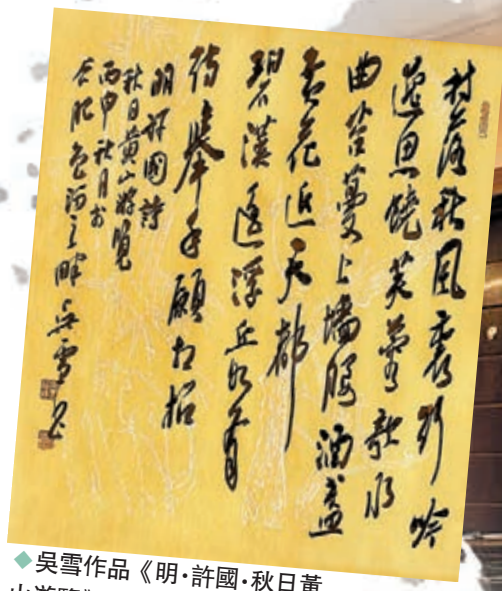 村落秋風裏行吟
逸思饒芙蓉歌水
曲苔蔓上墻腰酒盞
黃花近天都
碧漢遙浮丘如有
待舉手願相招
明許國詩
秋日黃山游覽
丙申秋月於
合肥包河之畔吳雪書
◆吳雪作品《明·許國·秋日黃